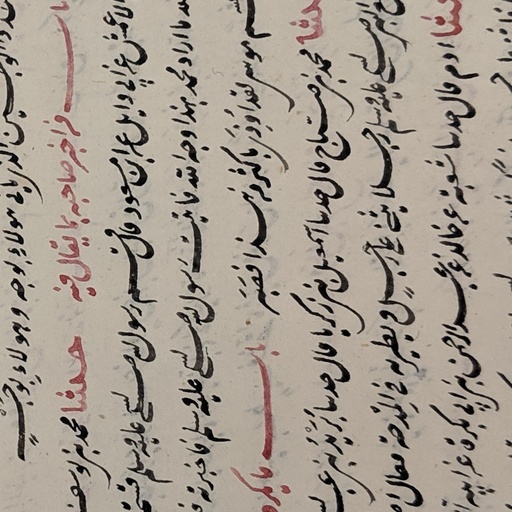 الوجهين الذى ياتى هولاء بوجه وهولاء بوجه
باب من اخبر صاحبه بما يقال فيه حدثنا محمد بن يوسف
الاعمش عن ابى وايل عن ابن مسعود قال قسم رسول الله صلى الله عليه وسلم قسمة
ما اراد محمد بهذا وجه الله فاتيت رسول الله صلى الله عليه وسلم فاخبرته
موسى لقد اوذى باكثر من هذا فصبر باب ما يكره
حدثنا محمد بن صباح قال حدثنا اسمعيل بن زكريا قال حدثنا بريد بن
النبى صلى الله عليه وسلم رجلا يثنى على رجل ويطريه فى المدحة فقال
حدثنا ادم قال حدثنا شعبة عن خالد عن عبد الرحمن بن ابى بكرة عن ابيه